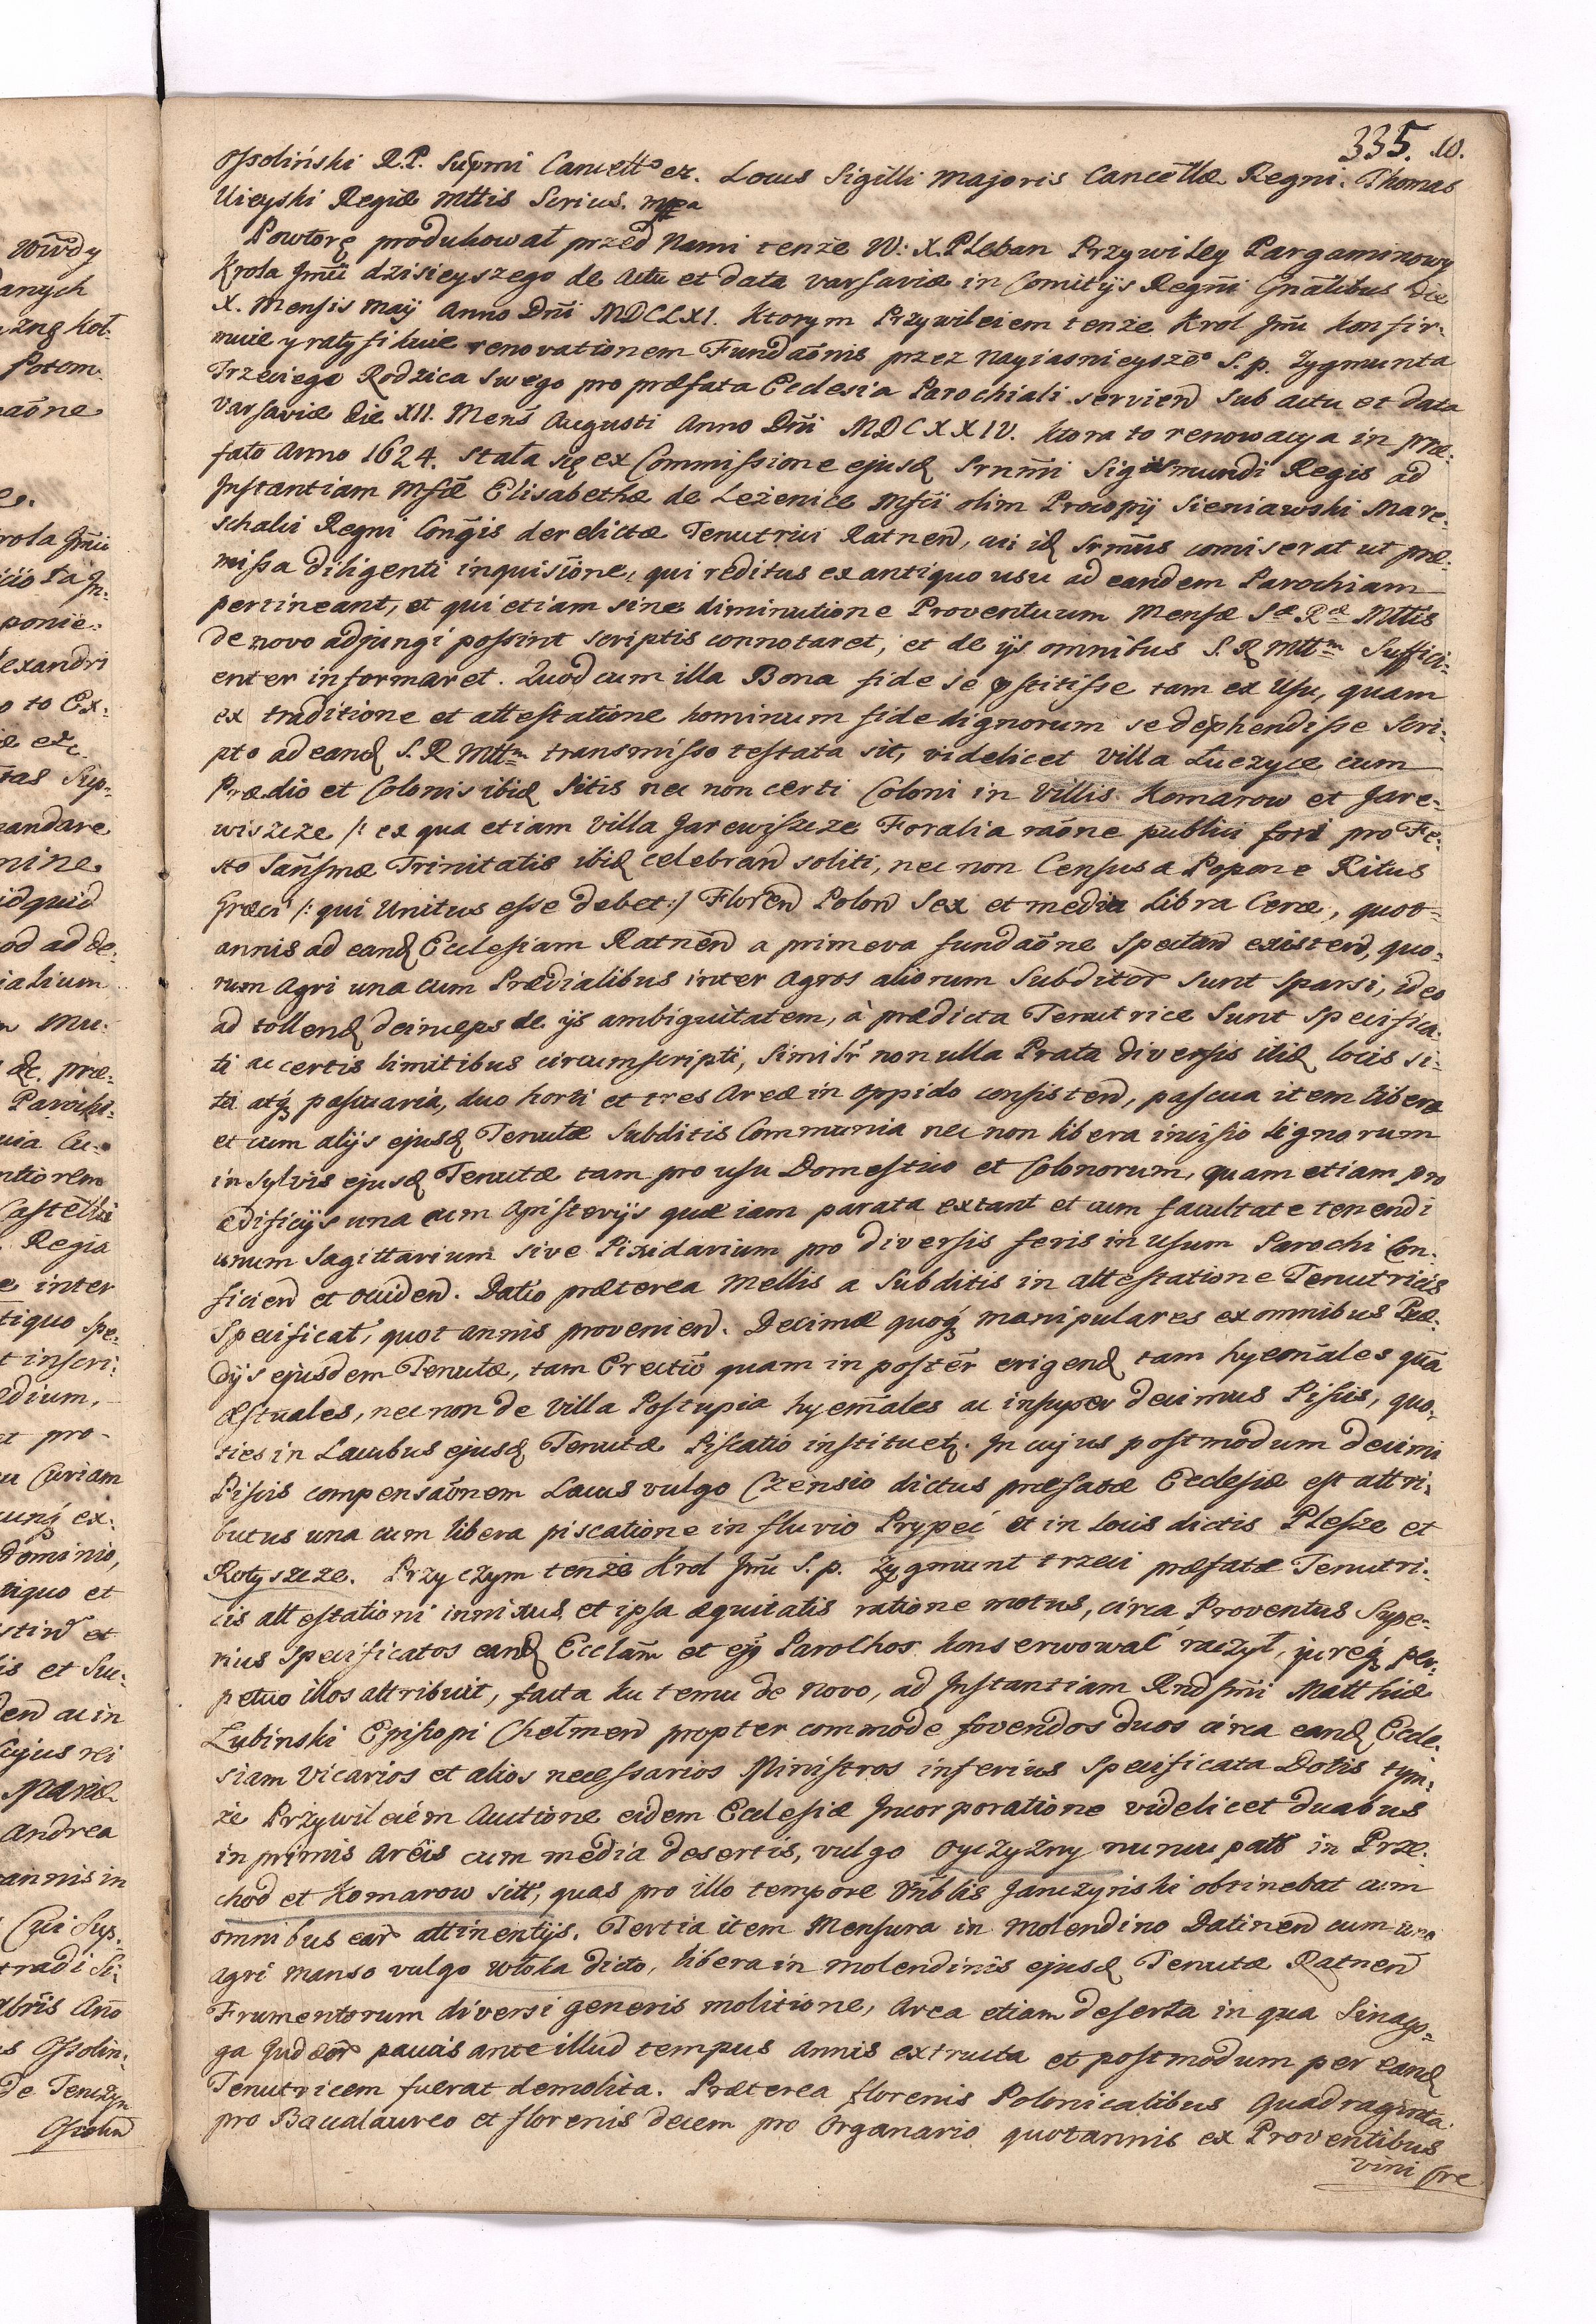 335. 10.
Ossoliński R.P. Supmi Cancell° ez. Locus Sigilli Majoris Cancellæ Regni. Thomas
Uieyski Regiæ Mttis Secius. mppa
Powtorę produkował przed Nami tenże W: X. Pleban Przywiley Pargaminowy
Krola Jmći dzisieyszego de Actu et data Varsaviæ in Comitÿs Regni Gnalibus die
X. Mensis Maÿ Anno Dñi MDCLXI. Ktorym Przywileiem tenże Krol Jmć konfir-
muie y ratyfikuie renovationem Fundaõnis przez Nayiasnieysze° S. p. Zygmunta
Trzeciego Rodzica swego pro præfata Ecclesia Parochiali serviend sub actu et data
Varsaviæ Die XII. Mens Augusti Anno Dñi MDCXXIV. ktora to renowacya in præ-
fato Anno 1624. stała się ex Commissione ejusd Srnmi Sigismundi Regis ad
Instantiam Mfcæ Elisabethæ de Leżenice Mfci olim Procopÿ Sieniawski Mare-
schalci Regni Congis derelictæ Tenutrici Ratnen, cui id Srmus comiserat ut præ-
missa diligenti inquisione, qui reditus ex antiquo usu ad eandem Parochiam
pertineant, et qui etiam sine diminutione Proventuum Mensæ Sæ Ræ Mttis
de novo adjungi possint scriptis connotaret, et de ÿs omnibus S. R Mttm Suffici-
enter informaret. Quod cum illa Bona fide se pstitisse tam ex Usu, quam
ex traditione et attestatione hominum fide dignorum se dephendisse Scri-
pto ad eand S. R Mttm transmisso testata sit, videlicet Villa Łuczyce cum
Prædio et Colonis ibid Sitis nec non certi Coloni in Villis Komarow et Jare-
wiszcze /: ex qua etiam Villa Jarewiszcze Foralia raõne publici fori pro Fe-
sto Sansmæ Trinitatis ibid celebrand soliti, nec non Census a Popone Ritus
Græci /: qui Unitus esse debet :/ Floren Polon Sex et media Libra Ceræ, quot-
annis ad eand Ecclesiam Ratnen a primeva fundaõne spectan existen, quo-
rum Agri una cum Prædialibus inter Agros aliorum Subditor sunt sparsi, ideo
ad tollend deinceps de ÿs ambiguitatem, à prædicta Tenutrice Sunt specifica-
ti ac certis limitibus circumscripti, Similr nonulla Prata diversis ibid locis si-
ta atq pascuaria, duo horti et tres Areæ in oppido consisten, pascua item libera
et cum alÿs ejusd Tenutæ Subditis Communia nec non libera incisio lignorum
in Sylvis ejusd Tenutæ tam pro usu Domestico et Colonorum, quam etiam pro
ædificÿs una cum Apisterÿs quæ iam parata extant et cum facultate tenendi
unum Sagittarium sive Pixidarium pro diversis feris in Usum Parochi Con-
ficien et occiden. Datio præterea Mellis a Subditis in attestatione Tenutricis
Specificat, quot annis provenien. Decimæ quoq manipulares ex omnibus Præ-
dÿs ejusdem Tenutæ, tam Erectis quam in poster erigend tam hyemales qua
æstuales, nec non de Villa Postupia hyemales ac insuper decimus Piscis, quo-
ties in Lacubus ejusd Tenutæ Piscatio instituet. In cujus postmodum decimi
Piscis compensaõnem Lacus vulgo Czensio dictus præfatæ Ecclesiæ est attri-
butus una cum libera piscatione in fluvio Prypeć et in locis dictis Plesze et
Rotyszcze. Przyczym tenże Krol Jmć S. p. Zygmunt trzeci præfatæ Tenutri-
cis attestationi innixus et ipsa æquitatis ratione motus, circa Proventus Supe-
rius Specificatos eand Ecclam et ejq Parochos konserwować raczył, jureq per-
petuo illos attribuit, facta ku temu de novo, ad Instantiam Rndsmi Matthiæ
Łubinski Episcopi Chełmen propter commode fovendos duos circa eand Eccle-
siam Vicarios et alios necessarios Ministros inferius Specificata Dotis tym-
że Przywileiem Auctione eidem Ecclesiæ Incorporatione videlicet duabus
in primis Areis cum media desertis, vulgo Oyczyzny nuncupatt in Prze-
chod et Komarow sitt, quas pro illo tempore Vnblis Janczynski obtinebat cum
omnibus ear attinentÿs. Tertia item Mensura in Molendino Datinen cum uno
agri Manso vulgo włoka dicto, libera in molendinis ejusd Tenutæ Ratnen
Frumentorum diversi generis molitione, Area etiam deserta in qua Sinago-
ga Judeor paucis ante illud tempus Annis extructa et postmodum per eand
Tenutricem fuerat demolita. Præterea florenis Polonicalibus Quadraginta
pro Baccalaureo et florenis decem pro Organario quotannis ex Proventibus
vini Cre